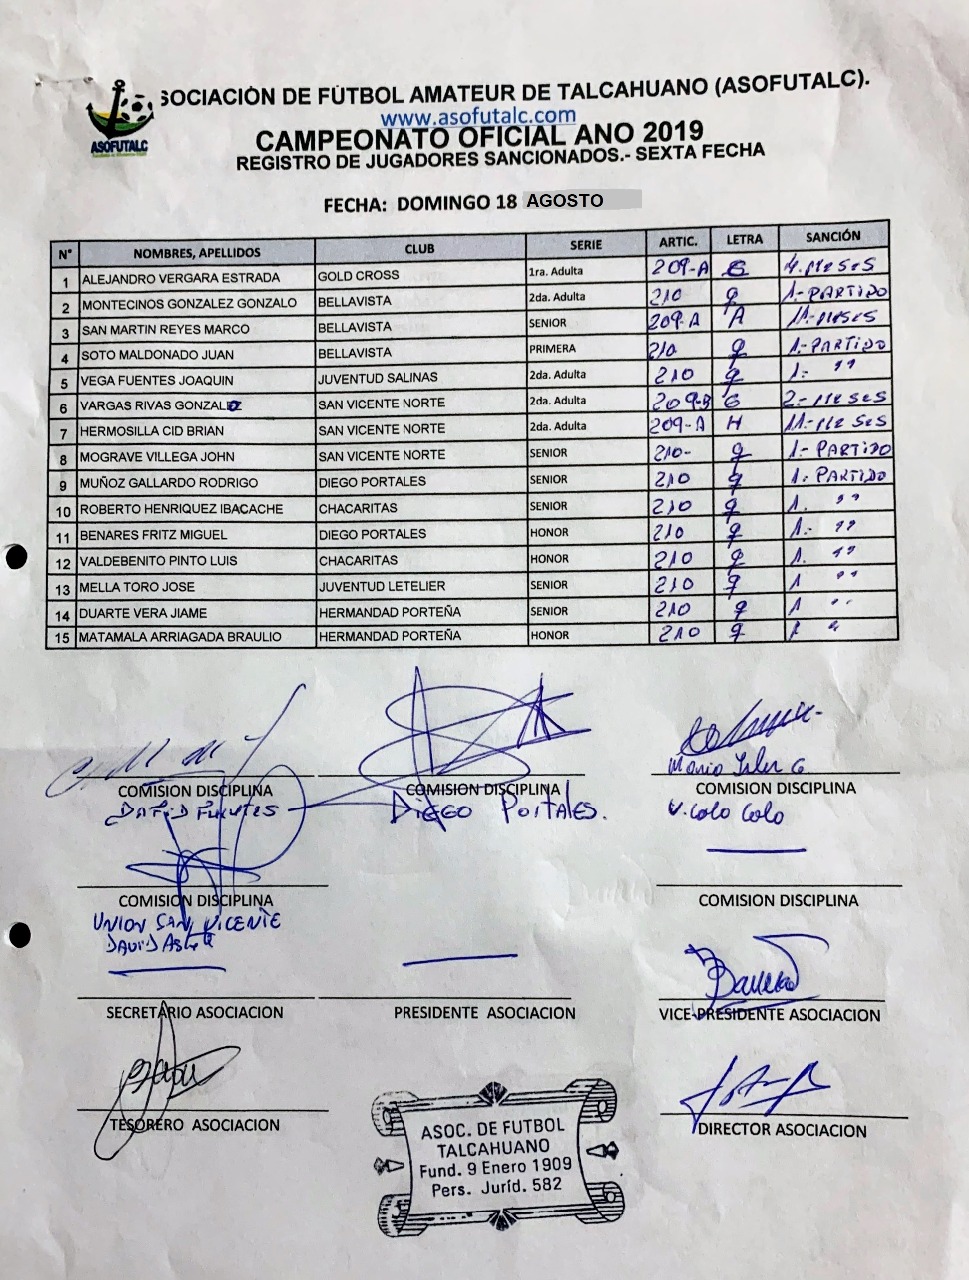 SOCIACIÓN DE FÚTBOL AMATEUR DE TALCAHUANO (ASOFUTALC).
www.asofutalc.com
ASOFUTALC
CAMPEONATO OFICIAL ANO 2019
REGISTRO DE JUGADORES SANCIONADOS.- SEXTA FECHA
FECHA: DOMINGO 18 AGOSTO
N° NOMBRES, APELLIDOS CLUB SERIE ARTIC. LETRA SANCIÓN
1 ALEJANDRO VERGARA ESTRADA GOLD CROSS 1ra. Adulta 209-A G 4.MESES
2 MONTECINOS GONZALEZ GONZALO BELLAVISTA 2da. Adulta 210 g 1.-PARTIDO
3 SAN MARTIN REYES MARCO BELLAVISTA SENIOR 209-A A 11.-MESES
4 SOTO MALDONADO JUAN BELLAVISTA PRIMERA 210 g 1.-PARTIDO
5 VEGA FUENTES JOAQUIN JUVENTUD SALINAS 2da. Adulta 210 g 1.- ''
6 VARGAS RIVAS GONZALO SAN VICENTE NORTE 2da. Adulta 209-B G 2.-MESES
7 HERMOSILLA CID BRIAN SAN VICENTE NORTE 2da. Adulta 209-A H 11.-MESES
8 MOGRAVE VILLEGA JOHN SAN VICENTE NORTE SENIOR 210- g 1.-PARTIDO
9 MUÑOZ GALLARDO RODRIGO DIEGO PORTALES SENIOR 210 g 1.-PARTIDO
10 ROBERTO HENRIQUEZ IBACACHE CHACARITAS SENIOR 210 g 1. ''
11 BENARES FRITZ MIGUEL DIEGO PORTALES HONOR 210 g 1.- ''
12 VALDEBENITO PINTO LUIS CHACARITAS HONOR 210 g 1. ''
13 MELLA TORO JOSE JUVENTUD LETELIER SENIOR 210 g 1 ''
14 DUARTE VERA JIAME HERMANDAD PORTEÑA SENIOR 210 g 1 ''
15 MATAMALA ARRIAGADA BRAULIO HERMANDAD PORTEÑA HONOR 210 g 1 ''
Mario
COMISION DISCIPLINA COMISION DISCIPLINA COMISION DISCIPLINA
DAVID FUENTES DIEGO PORTALES. V. COLO COLO
COMISION DISCIPLINA COMISION DISCIPLINA
UNION SAN VICENTE
DAVID
SECRETARIO ASOCIACION PRESIDENTE ASOCIACION VICE-PRESIDENTE ASOCIACION
TESORERO ASOCIACION DIRECTOR ASOCIACION
ASOC. DE FUTBOL
TALCAHUANO
Fund. 9 Enero 1909
Pers. Juríd. 582